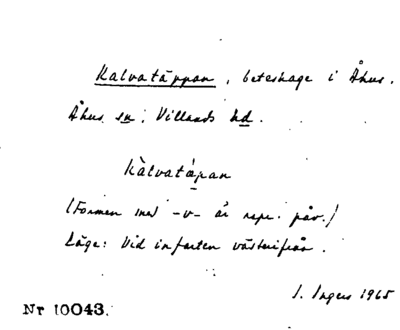 Kalvatäppan, beteshage i Åhus.
Åhus sn, Villands hd.
Kàlvatápan
(Formen med -v- är repr. påv.)
Läge: Vid infarten västerifrån.
I. Ingers 1965
Nr 10043.